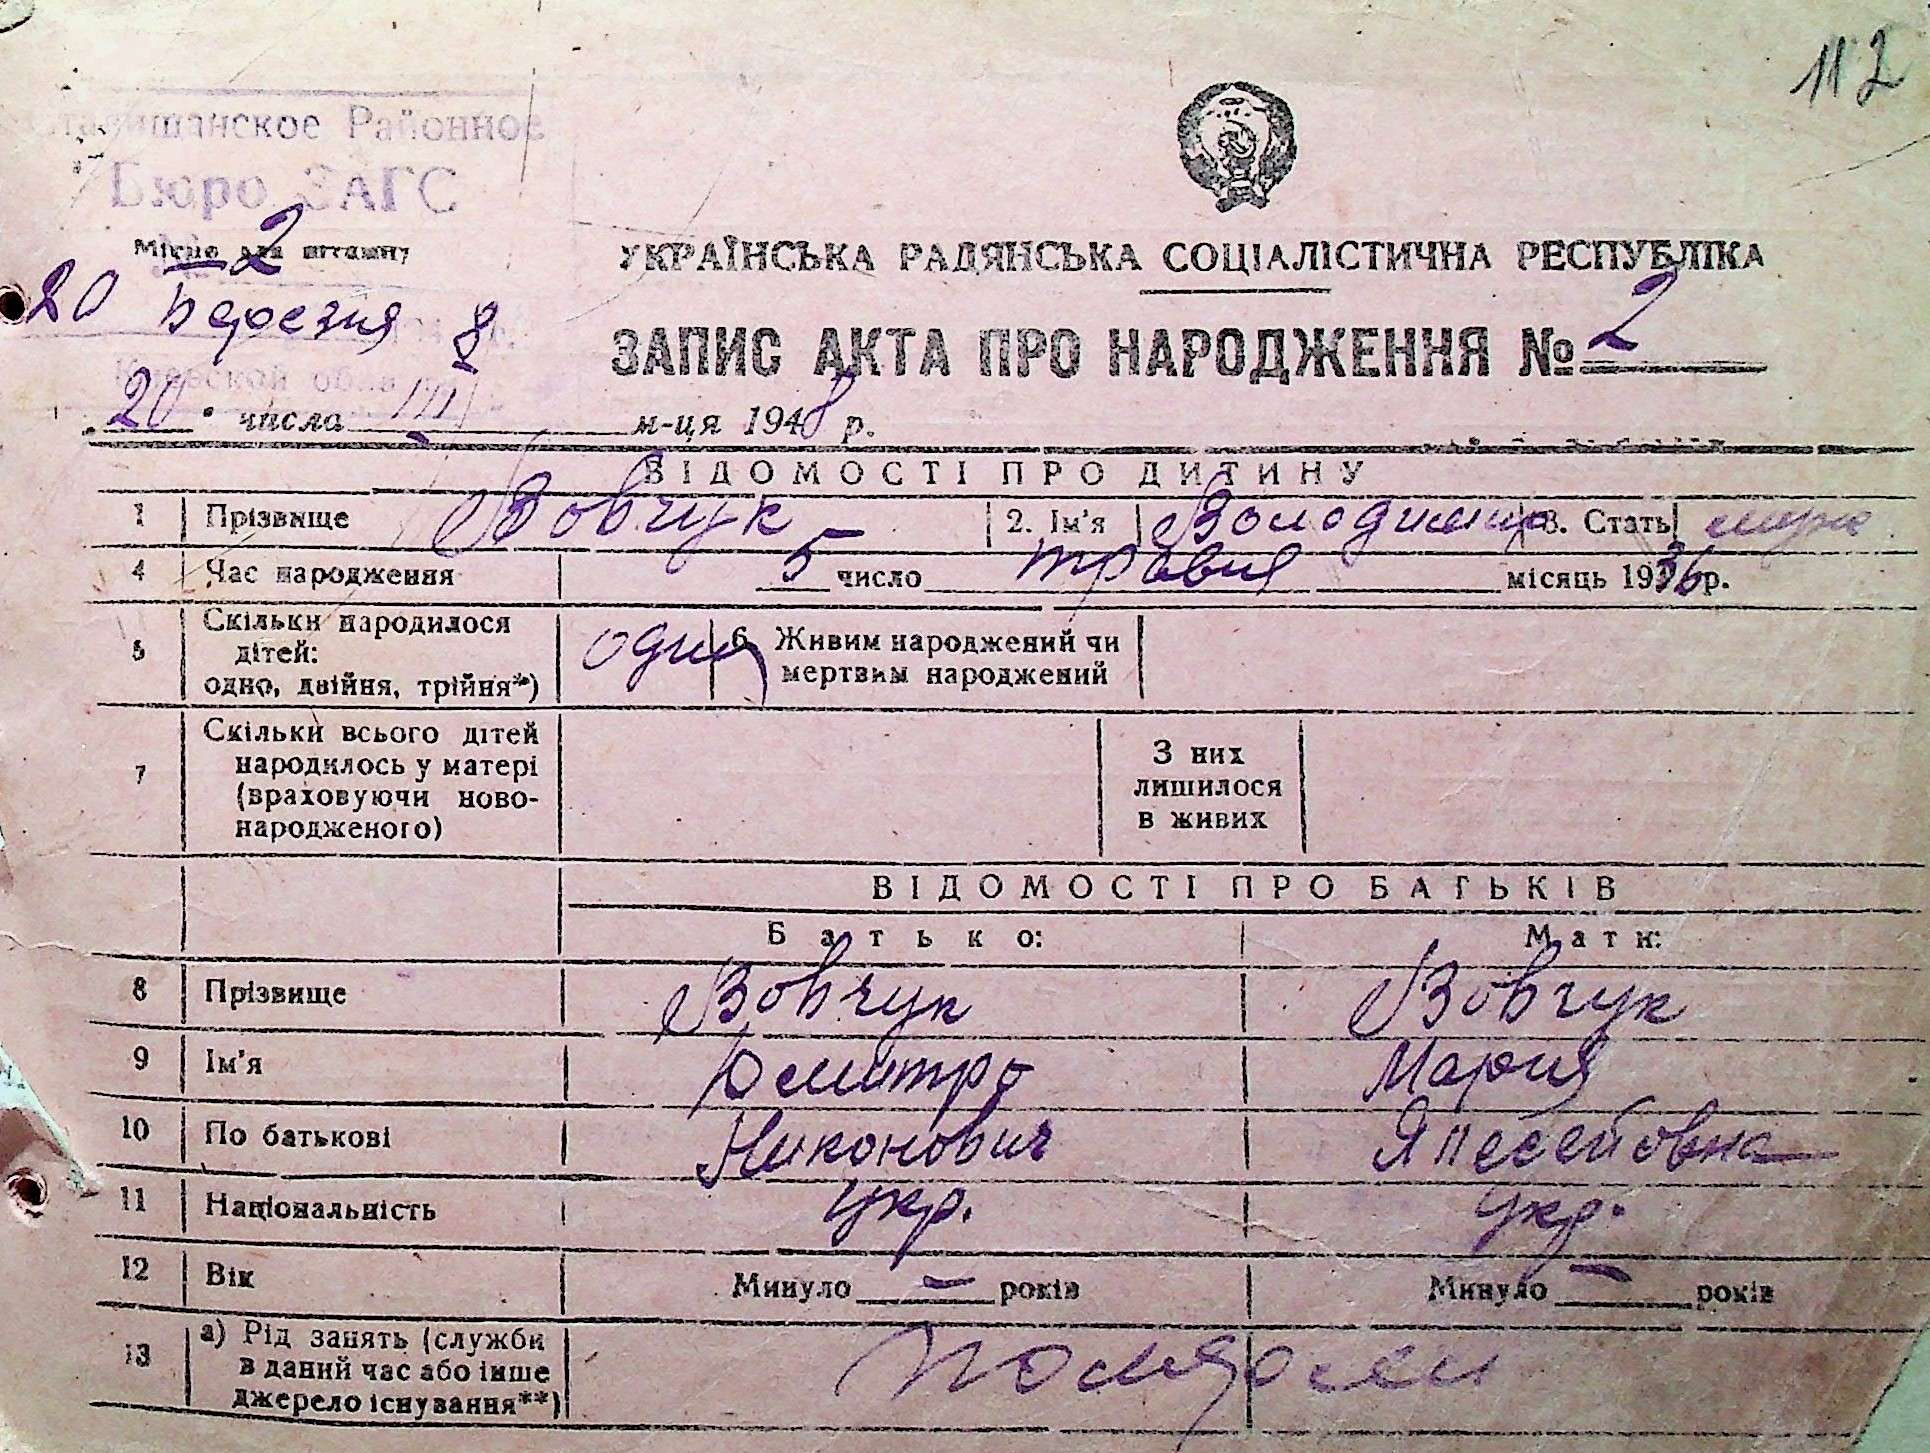 112
Ставищанское Районное
Бюро ЗАГС
Місце для штампу
№ 2
20 Березня 8
Киевской обл
УКРАЇНСЬКА РАДЯНСЬКА СОЦІАЛІСТИЧНА РЕСПУБЛІКА
ЗАПИС АКТА ПРО НАРОДЖЕННЯ № 2
„20" числа III м-ця 1948 р.
ВІДОМОСТІ ПРО ДИТИНУ
1 Прізвище Вовчук 2. Ім'я Володимир 3. Стать
4 Час народження 5 число травня місяць 1936 р.
5 Скільки народилося
дітей:
одно, двійня, трійня*) один
6. Живим народжений чи
мертвим народжений
7 Скільки всього дітей
народилось у матері
(враховуючи ново-
народженого)
З них
лишилося
в живих
ВІДОМОСТІ ПРО БАТЬКІВ
Батько: Мати:
8 Прізвище Вовчук Вовчук
9 Ім'я Дмитро Мария
10 По батькові Никонович
11 Національність укр. укр.
12 Вік Минуло — років Минуло — років
13 а) Рід занять (служби
в даний час або інше
джерело існування**)